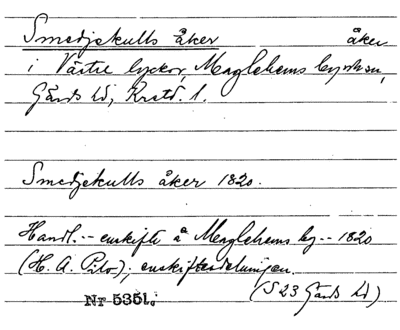 Smedjekulls åker åker
i Västre lyckor, Maglehems by o. sn,
Gärds hd, Krstd. l.
Smedjekulls åker 1820.
Handl. -- enskifte å Maglehems by -- 1820
(H. A. Pilo); enskiftesdelningen.
(S 23 Gärds hd)
Nr 5351.